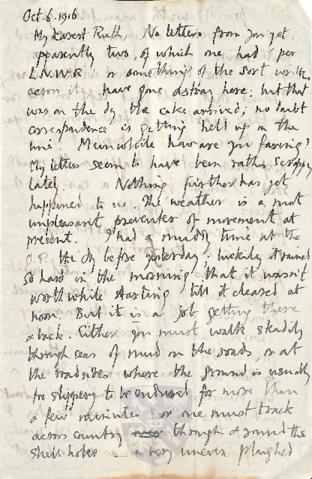 Oct. 6. 1916.
My dearest Ruth No letters from you yet
apparently two, of which one, had 'per
L.N.W.R.' or something of the sort written
across it, have gone astray here; but that
was on the day the cake arrived; no doubt
correspondence is getting held up on the
line. Meanwhile how are you faring?
My letters seem to have been rather scrappy
lately. Nothing further has yet
happened to us. The weather is a most
unpleasant preventer of movement at
present. I had a muddy time at the
O.P. the day before yesterday. luckily it rained
so hard in the morning that it wasn't
worth while starting till it cleared at
noon. But it is a job getting there
& back. Either you must walk steadily
through seas of mud in the roads, or at
the roadsides where the ground is usually
too slippery to be endured for more than
a few minutes or one must track
across country through & round the
shell holes - a very uneven ploughed